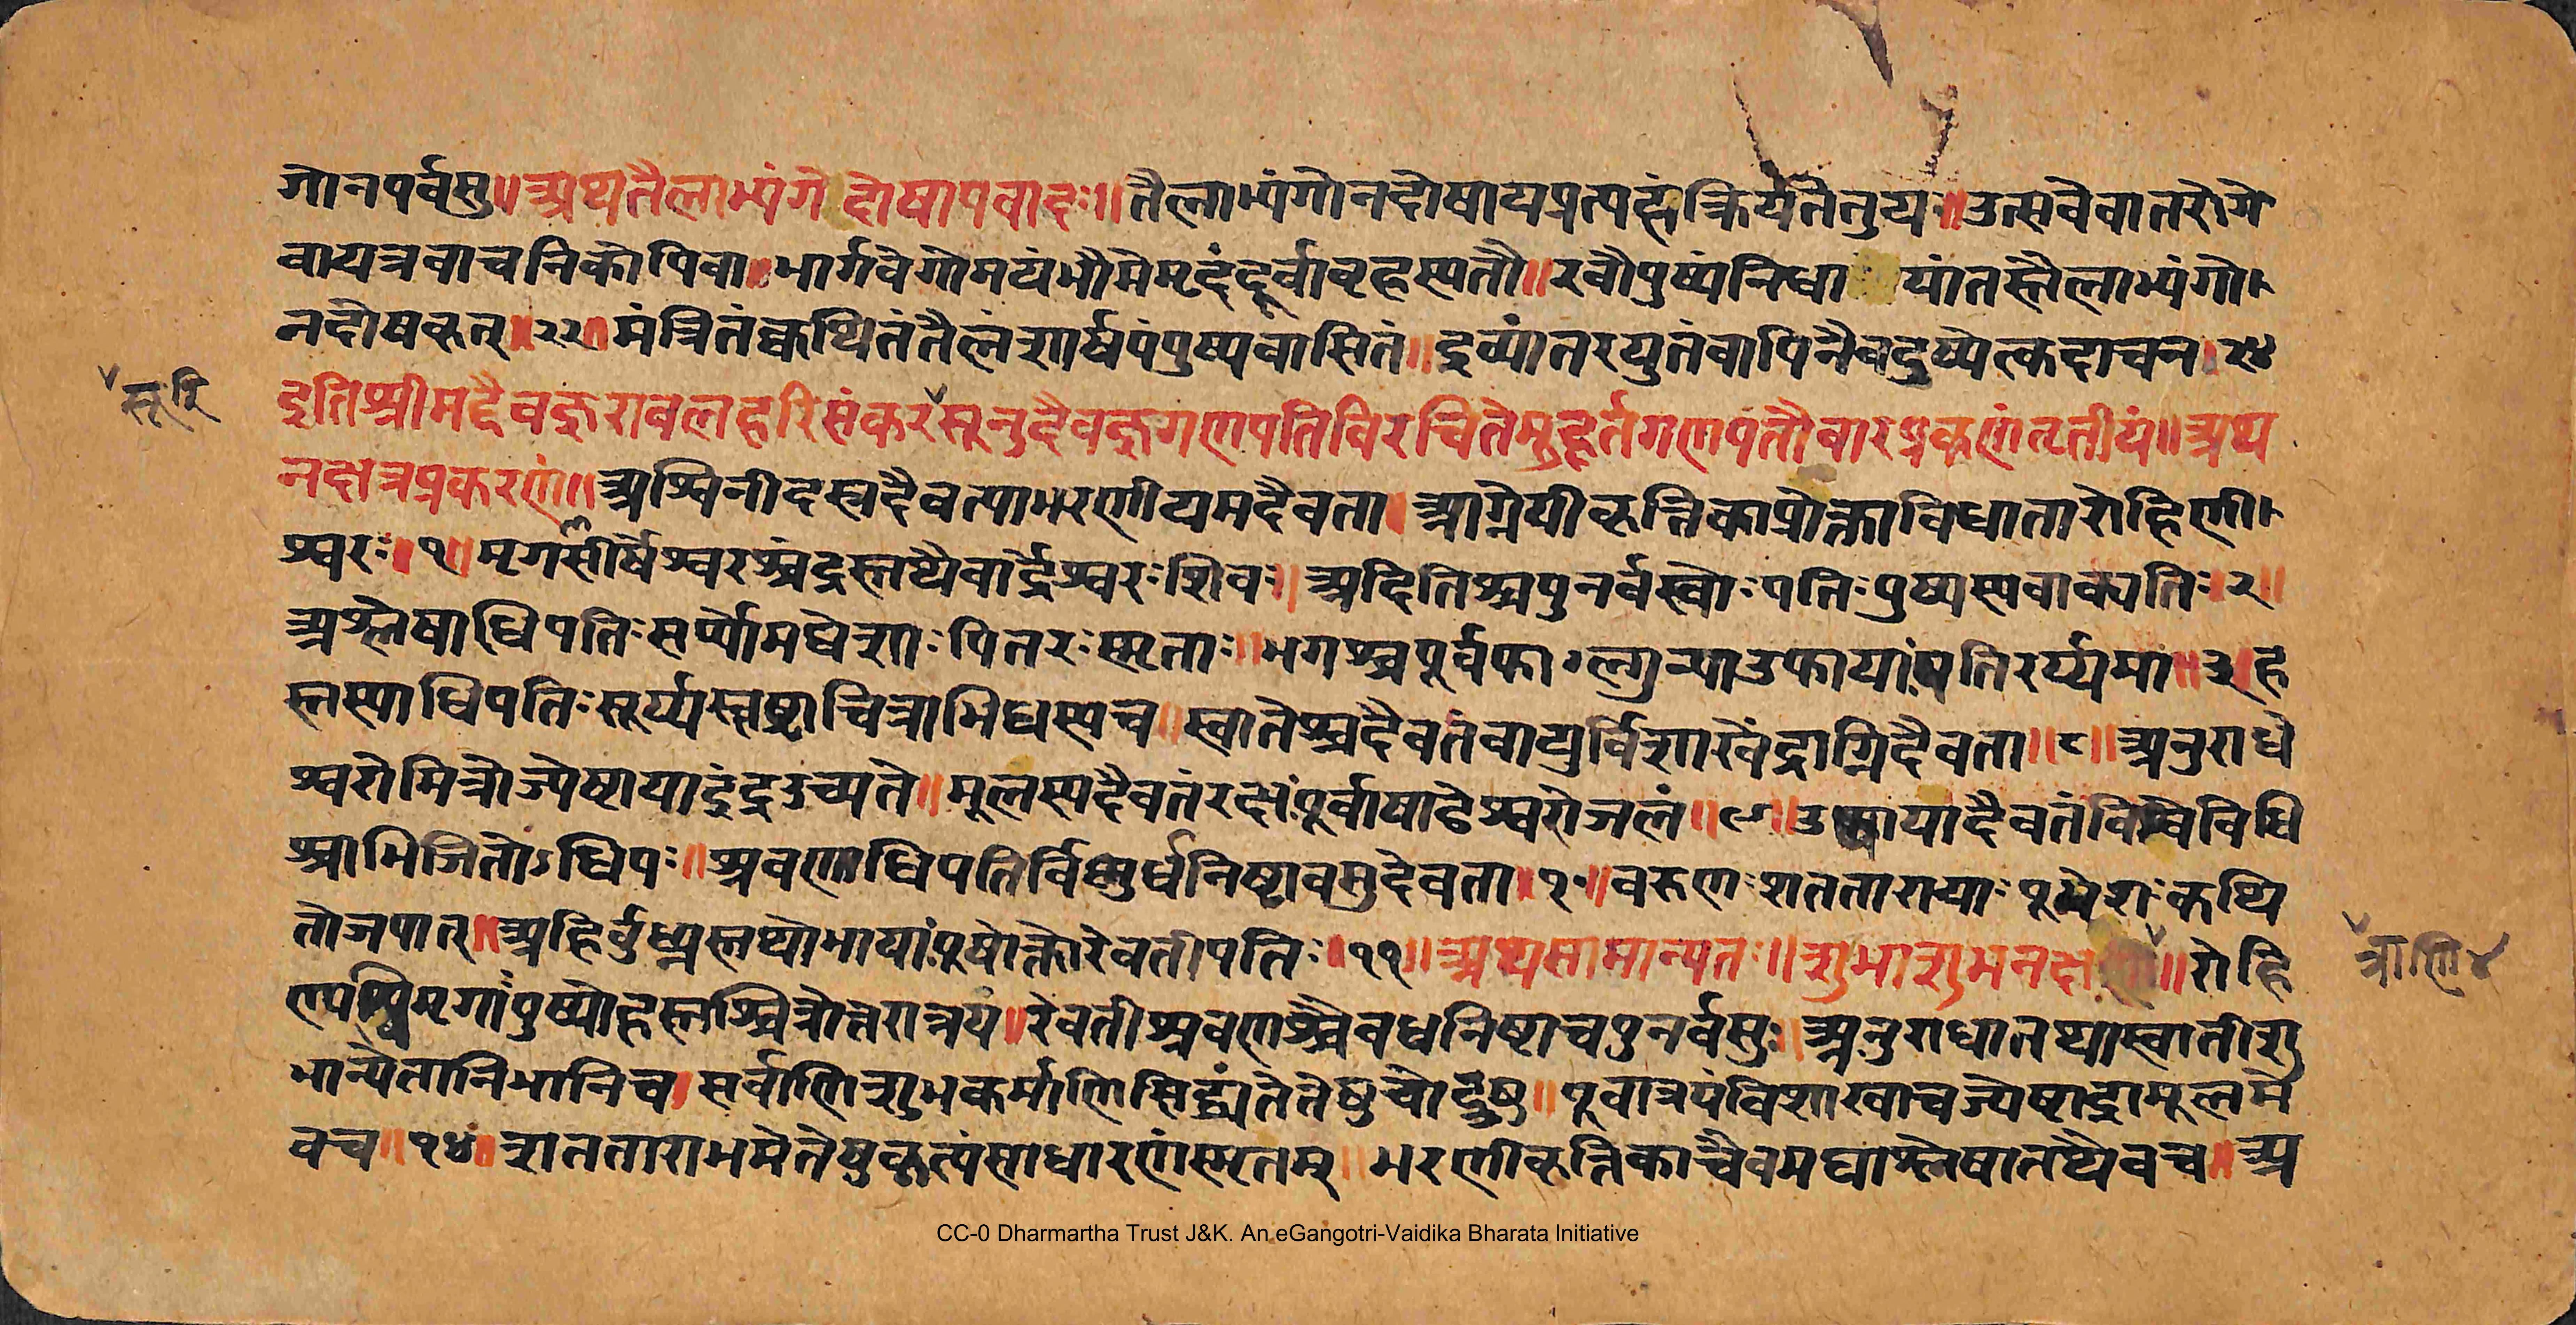 गोनपर्वसु॥अथतैलाभ्यंगेदोषापवादः॥तैलाभ्यंगोनदोषायप्रत्यहंक्रियतेतुयः॥उत्सवेवातरोगे
वायत्रवाचनिकोपिवा॥भार्गवेगोमयंभौमेमृदंदूर्वाबृहस्पतौ॥रवौपुष्पंनिधायांतस्तैलाभ्यंगो
नदोषकृत्॥२२॥मंत्रितंक्वथितंतैलंशार्षपंपुष्पवासितं॥द्रव्यांतरयुतंवापिनैवदुष्येत्कदाचन॥
सूरि
इतिश्रीमद्दैवज्ञरावलहरिसंकरसूनुदैवज्ञगणपतिविरचितेमुहूर्तगणपतौवारप्रकर्णंतृतीयं॥अथ
नक्षत्रप्रकरणं॥अश्विनीदस्रदैवत्याभरणीयमदैवता॥आग्नेयीकृत्तिकाप्रोक्ताविधातारोहिणी
श्वरः॥१॥मृगसीर्षेश्वरश्चंद्रस्तथैवार्द्रेश्वरःशिवः॥अदितिश्चपुनर्वस्वोःपतिःपुष्यस्यवाक्पतिः॥२॥
अश्लेषाधिपतिःसर्प्पोमघेशाःपितरःस्मृताः॥भगश्चपूर्वफाल्गुन्याउफायांपतिरर्य्यमा॥३॥ह
स्तस्याधिपतिःसूर्य्यस्त्वष्टाचित्राभिधस्यच॥स्वातेश्चदैवतंवायुर्विशाखेंद्राग्निदैवता॥८॥अनुराधे
श्वरोमित्रोज्येष्ठायाइंद्रउच्यते॥मूलस्यदैवतंरक्षःपूर्वाषाढेश्वरोजलं॥९॥उषायादैवतंविश्वेविधि
श्चाभिजितोऽधिपः॥श्रवणाधिपतिर्विष्णुर्धनिष्ठावसुदेवता॥१०॥वरुणःशततारायाःपूभेशःकथि
तोजपात्॥अहिर्वुध्न्यस्तथोभायांपूषोक्तोरेवतीपतिः॥११॥अथसामान्यतः॥शुभाशुभनक्ष॥रोहि
त्राणि४
ण्यश्विमृगाःपुष्योहस्तश्चित्रोत्तरात्रयं॥रेवतीश्रवणश्चैवधनिष्ठाचपुनर्वसुः॥अनुराधातथास्वातीशु
भान्येतानिभानिच॥सर्वाणिशुभकर्माणिसिद्ध्यंतेतेषुचोडुषु॥पूवात्रयंविशाखाचज्येष्ठाद्रामूलमे
वच॥१४॥शतताराभमेतेषुकृत्यंसाधारणंस्मृतम्॥भरणीकृत्तिकाचैवमघाश्लेषातथैवच॥अ
CC-0 Dharmartha Trust J&K. An eGangotri-Vaidika Bharata Initiative